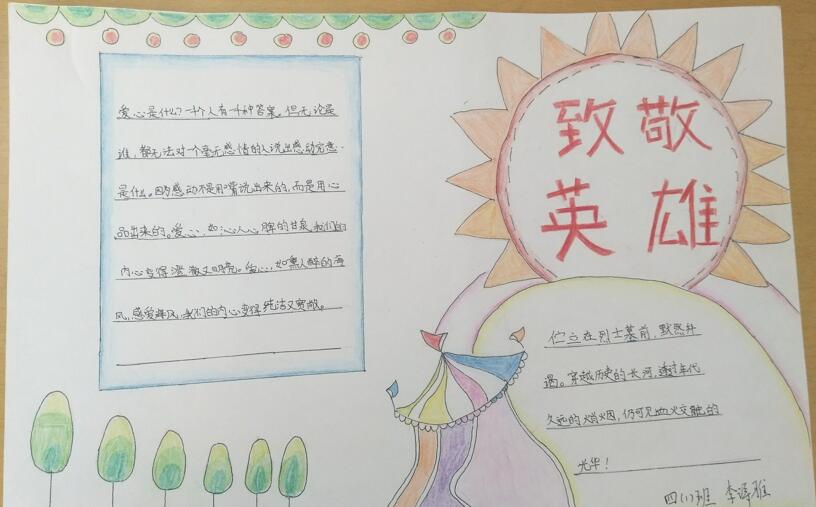 爱心是什么？一个人有一种答案。但无论是
谁，都无法对一个毫无感情的人说出感动究竟
是什么。因为感动不是用嘴说出来的，而是用心
品出来的。爱心，如沁人心脾的甘泉，我们的
内心变得澄澈又明亮。爱心，如熏人醉的海
风，感受海风，我们的内心变得纯洁又宽敞。
致敬
英雄
伫立在烈士墓前，默然补
遏。穿越历史的长河，透过年代
久远的硝烟，仍可见血火交融的
光华！
四(1)班 李泽雅